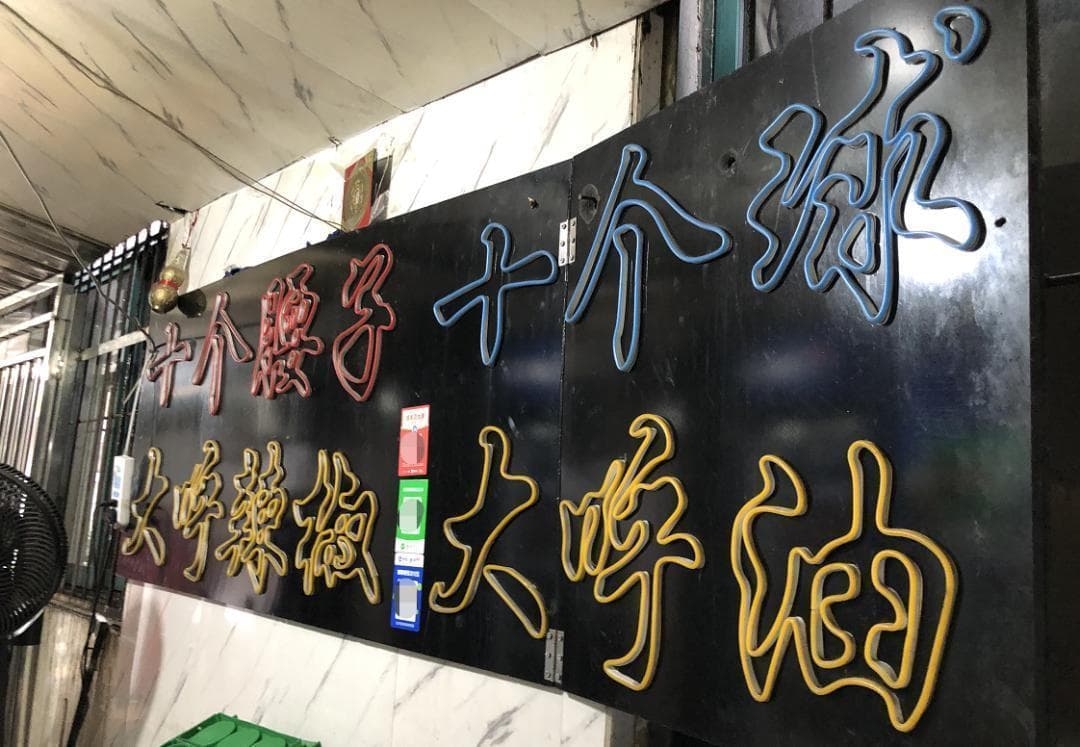 十个腰子 十个球
大哞辣椒 大哞油